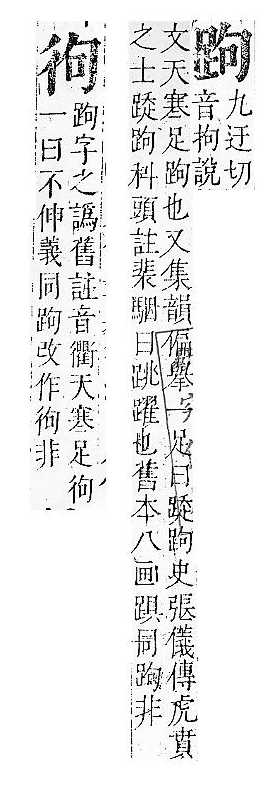 跔
九迂切
音拘說
文天寒足跔也又集韻偏舉一足曰跔史張儀傳虎賁
之士跔科頭註裴駰曰跳躍也舊本八畫同跔非
㣄
跔字之譌舊註音衢天寒足㣄
一曰不伸義同跔改作㣄非